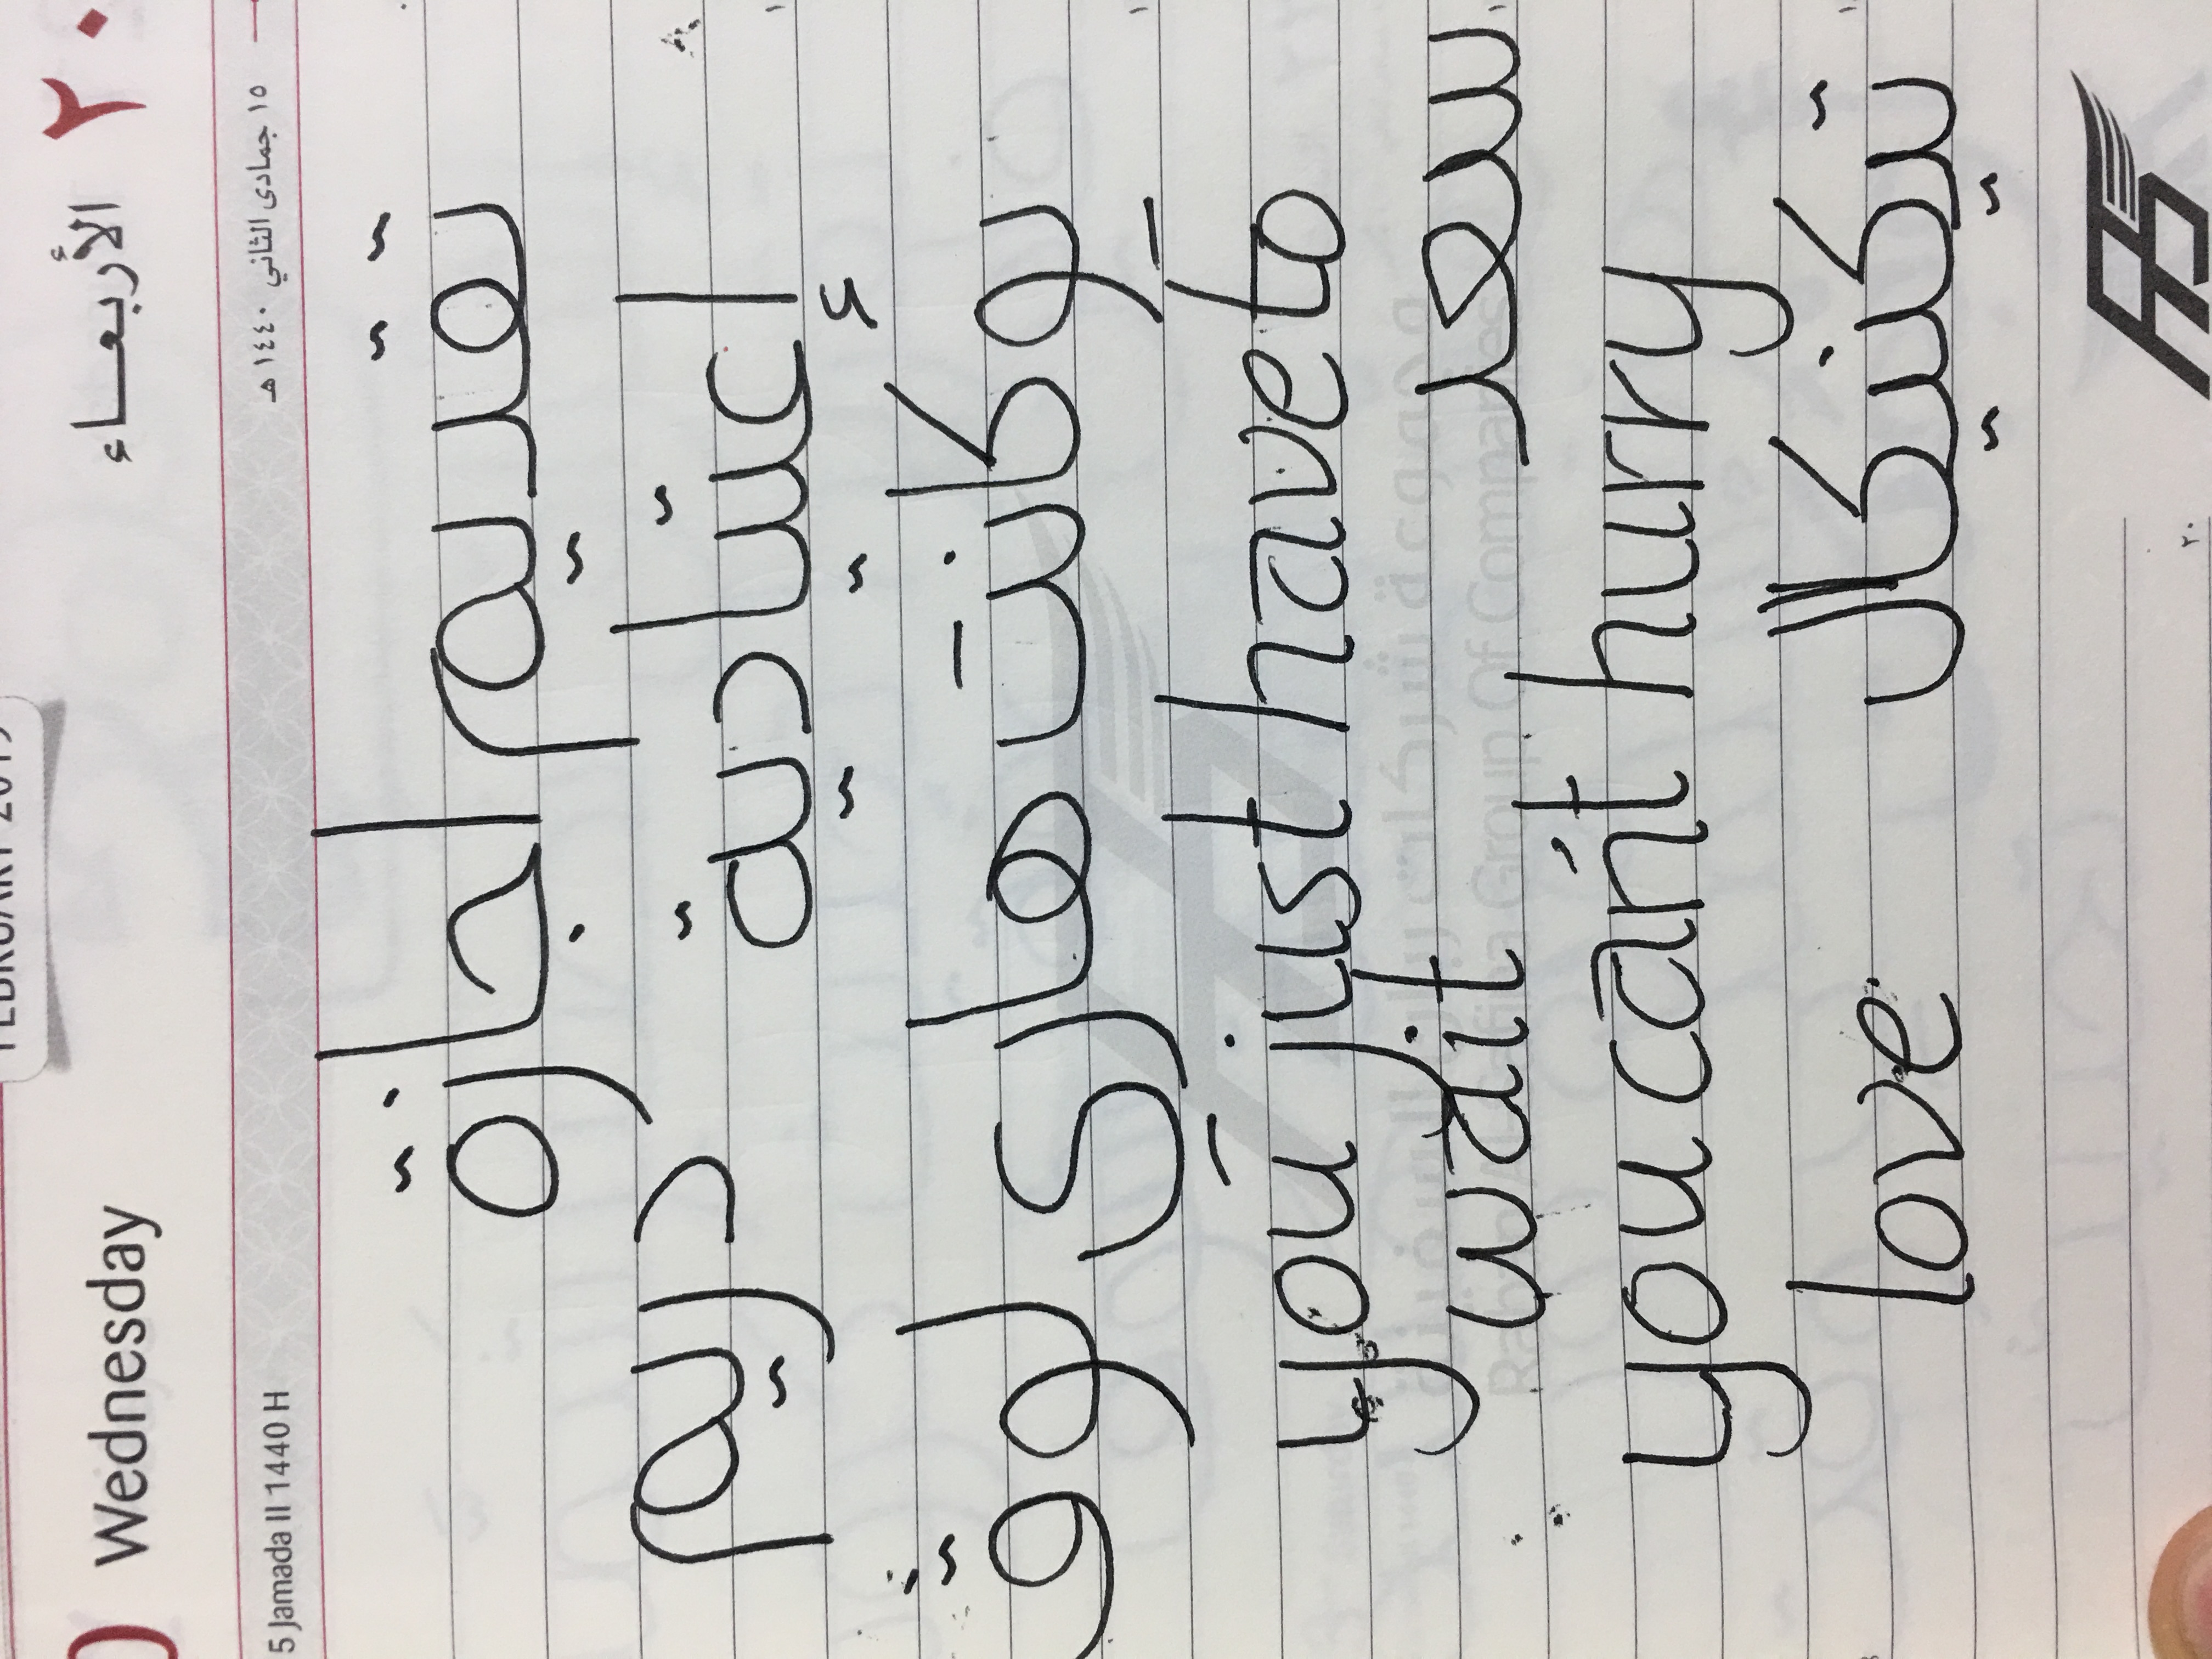 FEBRUARY 2019
Wednesday الأربعاء ٢٠
5 Jamada II 1440 H ١٥ جمادى الثاني ١٤٤٠ هـ
تقديم اجازة
إعتيادية دريم
يو كانت هاري لوڤ
you just have to
wait سعد
you can't hurry
love تيكنيكال
مجموعة شركات ربان السفينة
Raban Al-Safina Group Of Companies
٢٠